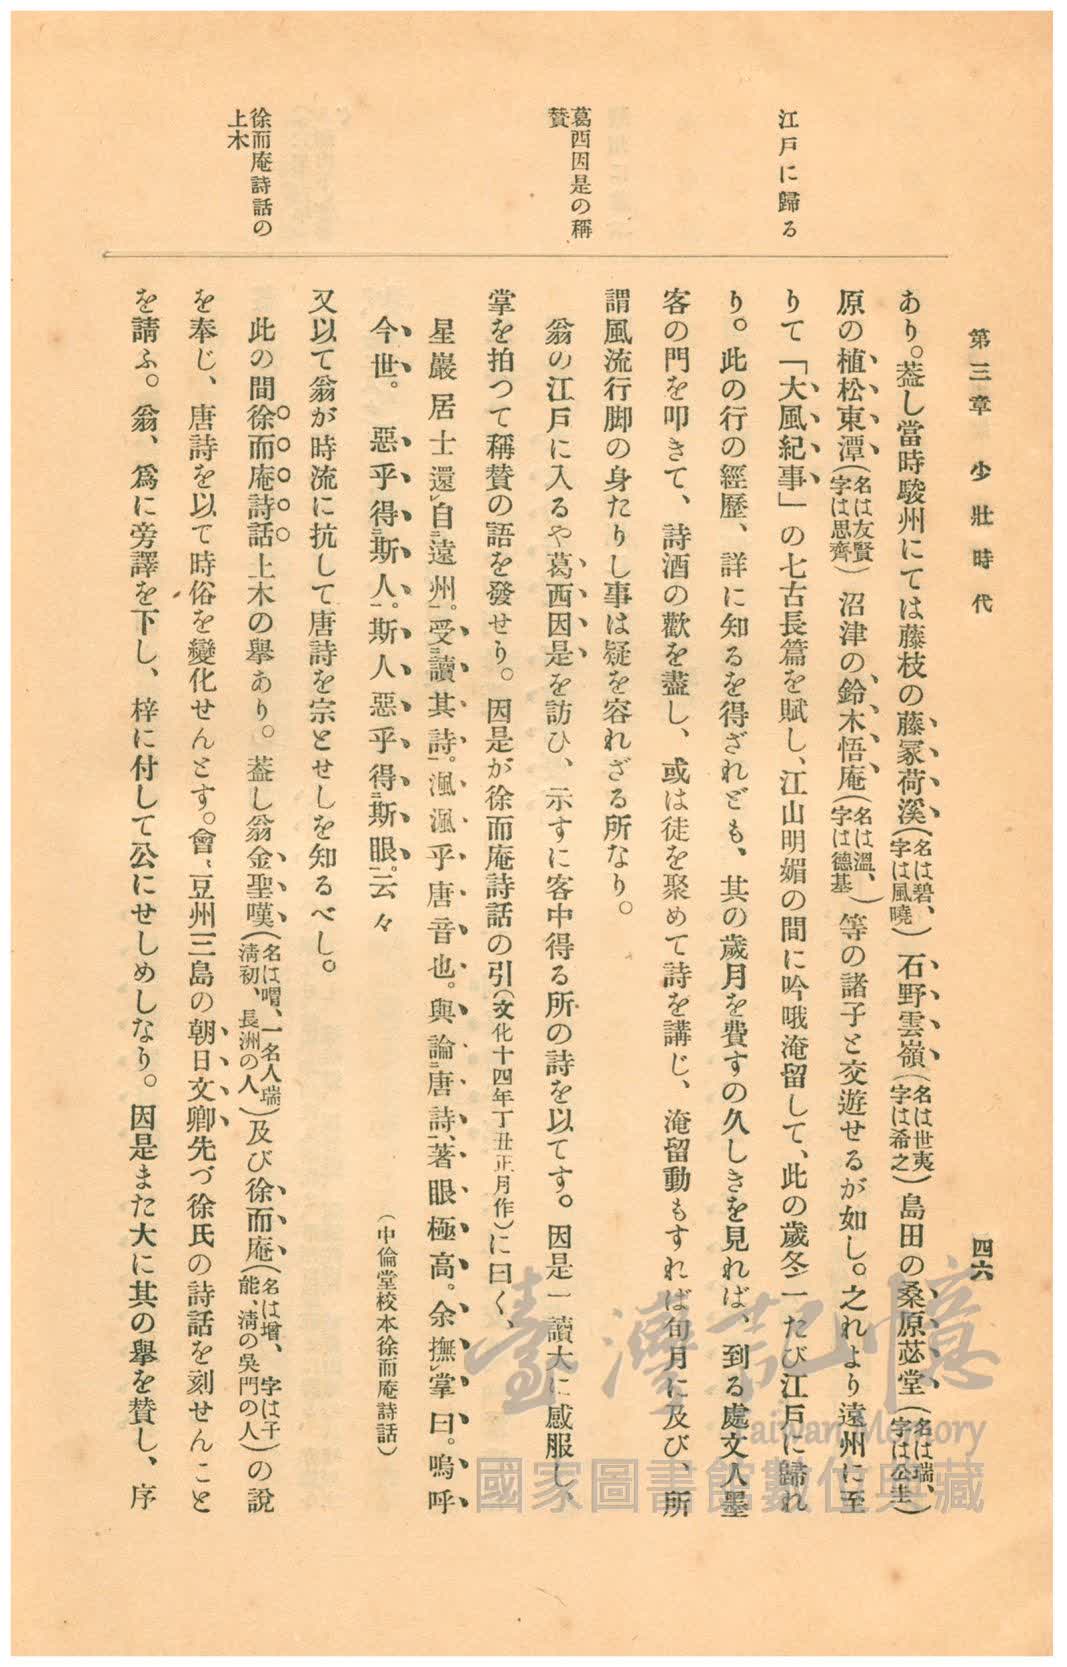 第三章 少壯時代
四六
江戸に歸る
葛西因是の稱
贊
徐而庵詩話の
上木
あり。蓋し當時駿州にては藤枝の藤冢荷溪(名は碧、字は風曉)石野雲嶺(名は世夷字は希之)島田の桑原苾堂(名は瑞、字は公圭)
原の植松東潭(名は友賢字は思齊)沼津の鈴木悟庵(名は溫、字は德基)等の諸子と交遊せるが如し。之れより遠州に至
りて「大風紀事」の七古長篇を賦し、江山明媚の間に吟哦淹留して、此の歲冬一たび江戸に歸れ
り。此の行の經歷、詳に知るを得ざれども、其の歲月を費すの久しきを見れば、到る處文人墨
客の門を叩きて、詩酒の歡を盡し、或は徒を聚めて詩を講じ、淹留動もすれば旬月に及び、所
謂風流行脚の身たりし事は疑を容れざる所なり。
翁の江戸に入るや葛西因是を訪ひ、示すに客中得る所の詩を以てす。因是一讀大に感服し、
掌を拍つて稱贊の語を發せり。因是が徐而庵詩話の引(文化十四年丁丑正月作)に曰く、
星巖居士還レ自二遠州一。受二讀其詩一。渢渢乎唐音也。與論二唐詩一、著眼極高。余撫レ掌曰。嗚呼
今世。惡乎得二斯人一。斯人惡乎得二斯眼一。云々
(中倫堂校本徐而庵詩話)
又以て翁が時流に抗して唐詩を宗とせしを知るべし。
此の間徐而庵詩話上木の擧あり。蓋し翁金聖嘆(名は喟、一名人瑞淸初、長洲の人)及び徐而庵(名は增、字は子能、淸の吳門の人)の說
を奉じ、唐詩を以て時俗を變化せんとす。會、豆州三島の朝日文卿先づ徐氏の詩話を刻せんこと
を請ふ。翁、爲に旁譯を下し、梓に付して公にせしめしなり。因是また大に其の擧を贊し、序
臺灣記憶
Taiwan Memory
國家圖書館數位典藏